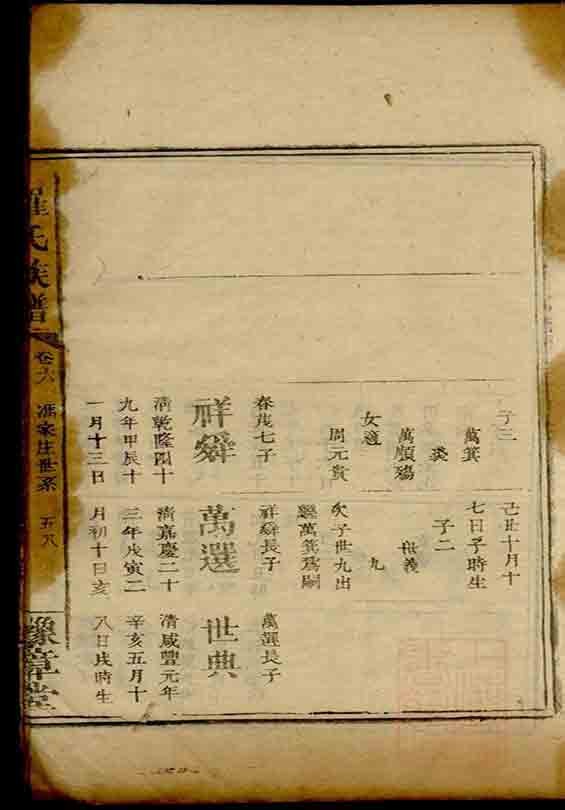 子三
萬箕
萬頎殤
女適
周元賁
春茂七子
祥舜
清乾隆四十
九年甲辰十
一月十三日
己丑十月十
七日子時生
子二
世義
九
次子世九出
繼萬箕爲嗣
祥舜長子
萬選
清嘉慶二十
三年戊寅二
月初十日亥
萬選長子
世典
清咸豐元年
辛亥五月十
八日戌時生
羅氏族譜
卷六
馮家庄世系
五八
豫章堂